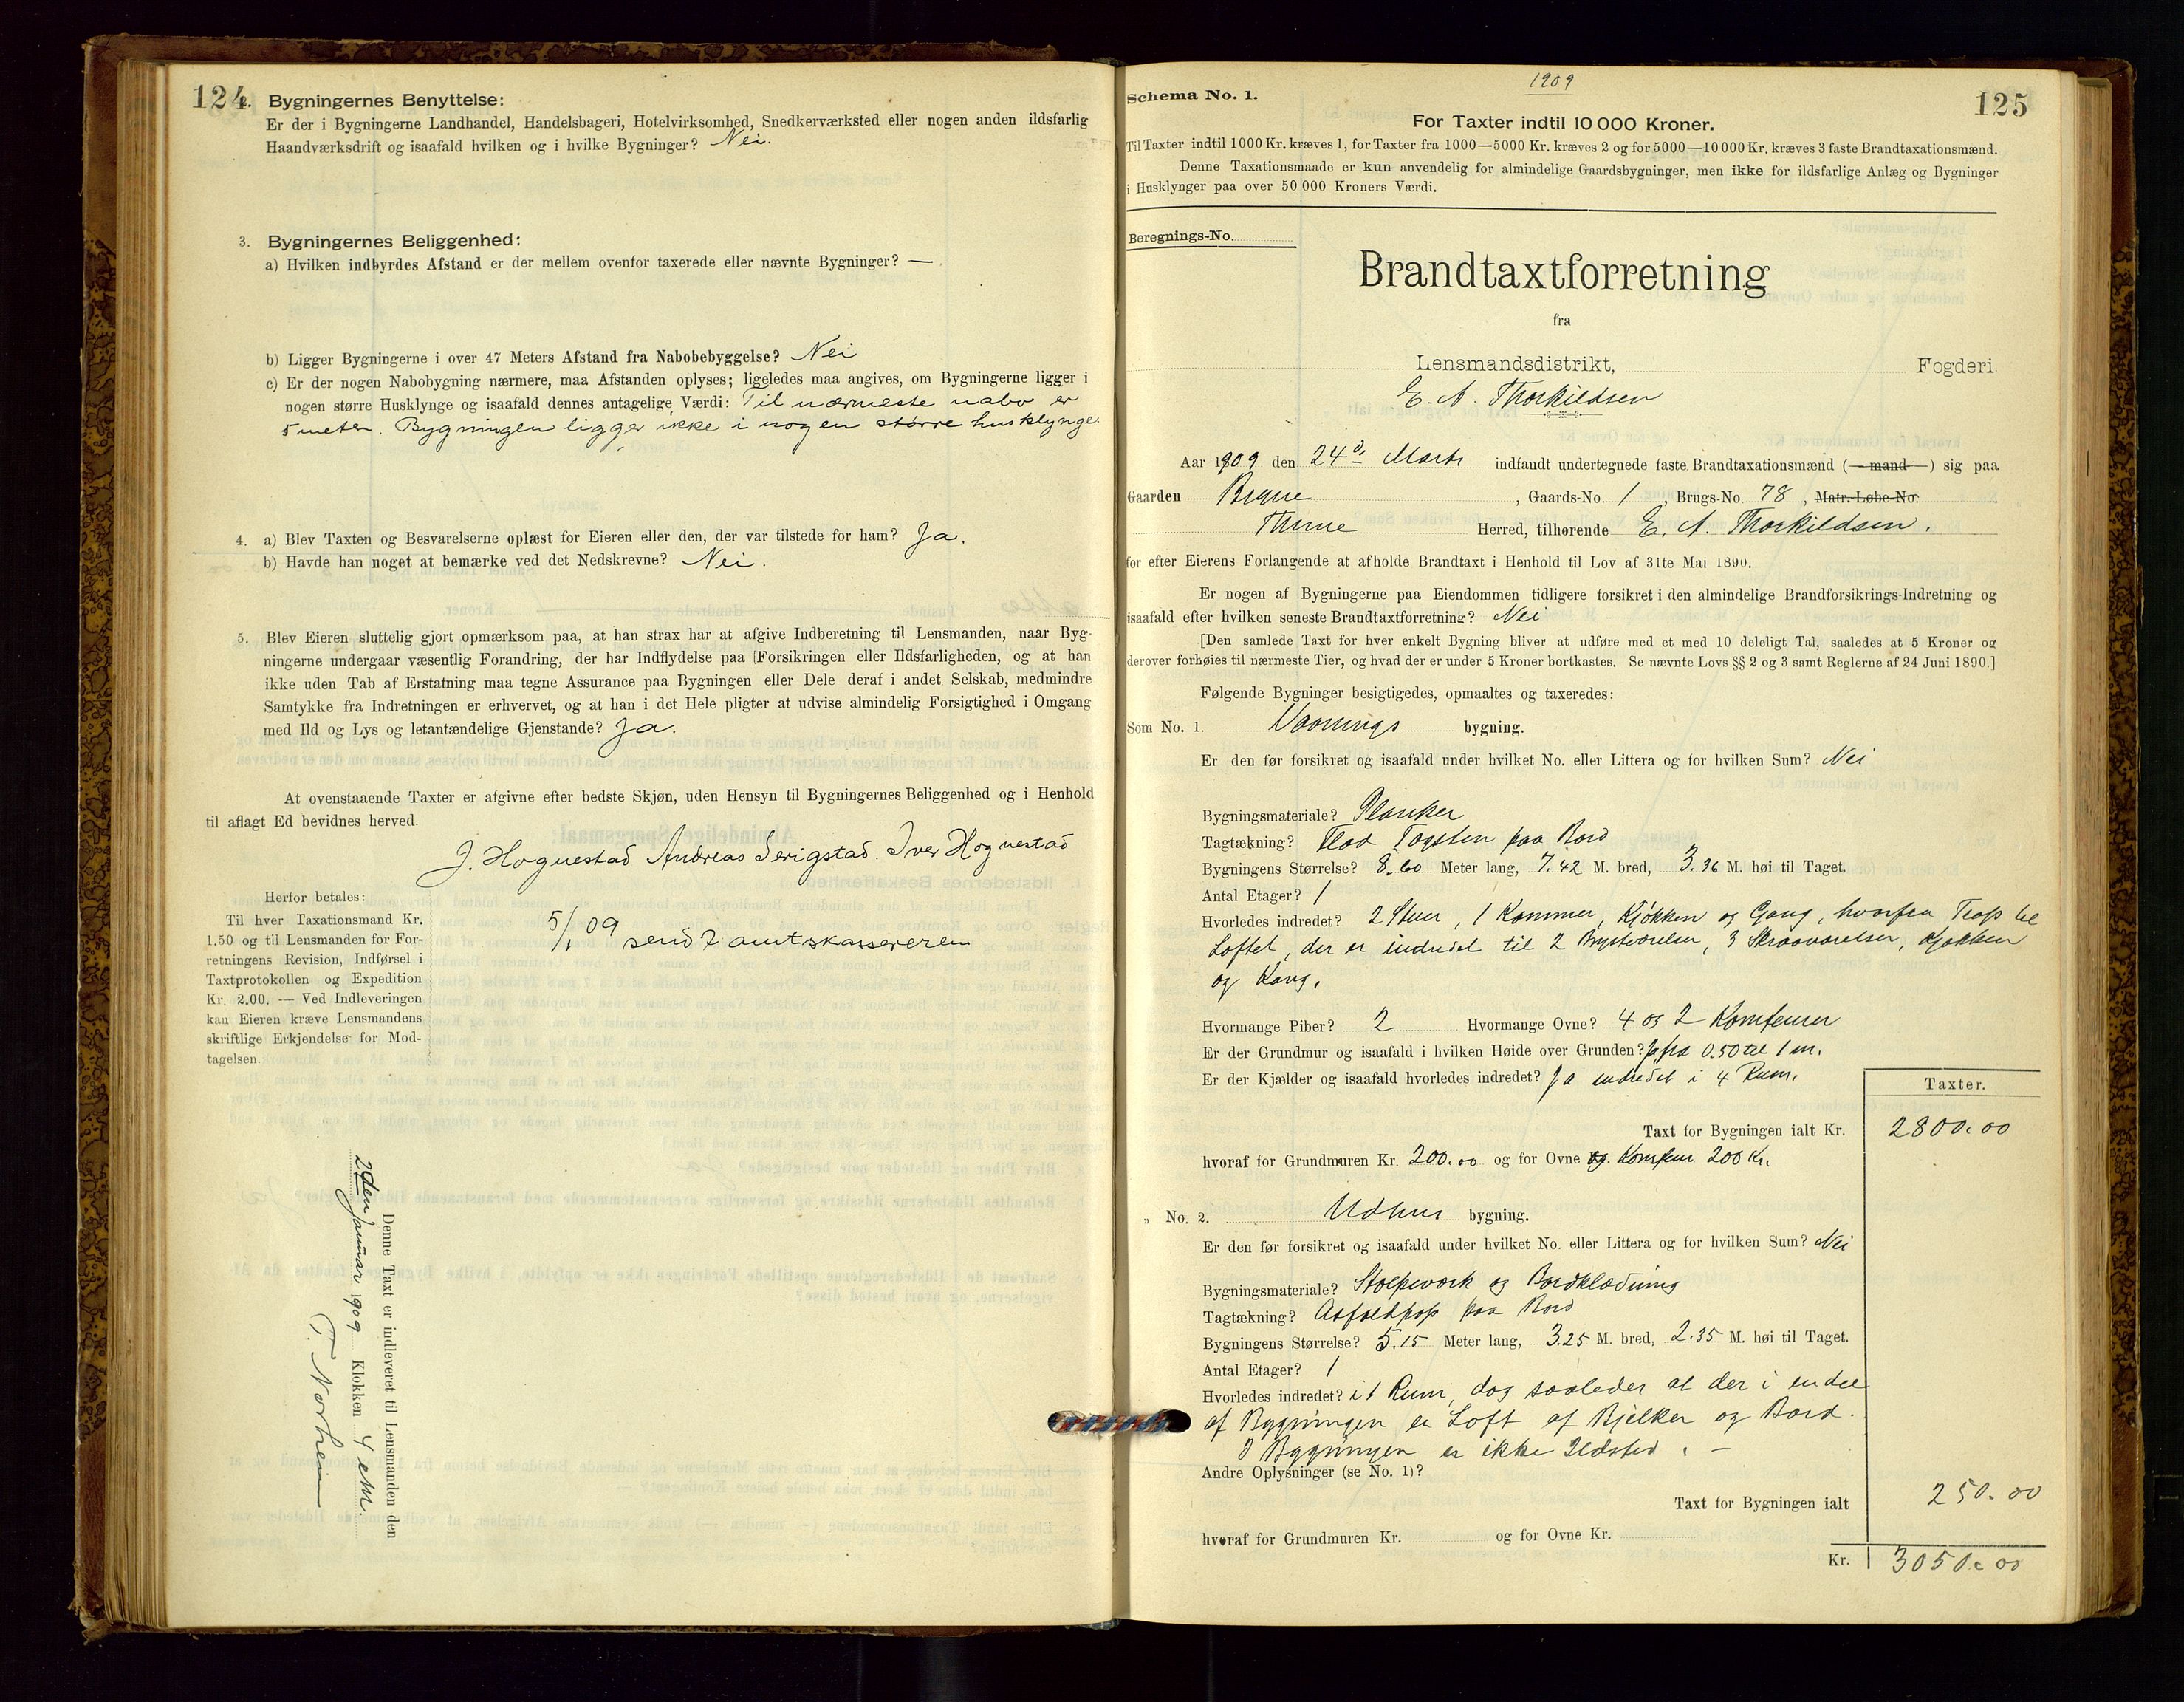 124
2. Bygningernes Benyttelse:
Er der i Bygningerne Landhandel, Handelsbageri, Hotelvirksomhed, Snedkerværksted eller nogen anden ildsfarlig
Haandværksdrift og isaafald hvilken og i hvilke Bygninger? Nei.
3. Bygningernes Beliggenhed:
a) Hvilken indbyrdes Afstand er der mellem ovenfor taxerede eller nævnte Bygninger? —
b) Ligger Bygningerne i over 47 Meters Afstand fra Nabobebyggelse? Nei
c) Er der nogen Nabobygning nærmere, maa Afstanden oplyses; ligeledes maa angives, om Bygningerne ligger i
nogen større Husklynge og isaafald dennes antagelige Værdi: Til nærmeste nabo er
5 meter. Bygningen ligger ikke i nogen større husklynge.
4. a) Blev Taxten og Besvarelserne oplæst for Eieren eller den, der var tilstede for ham? Ja.
b) Havde han noget at bemærke ved det Nedskrevne? Nei.
5. Blev Eieren sluttelig gjort opmærksom paa, at han strax har at afgive Indberetning til Lensmanden, naar Byg-
ningerne undergaar væsentlig Forandring, der har Indflydelse paa Forsikringen eller Ildsfarligheden, og at han
ikke uden Tab af Erstatning maa tegne Assurance paa Bygningen eller Dele deraf i andet Selskab, medmindre
Samtykke fra Indretningen er erhvervet, og at han i det Hele pligter at udvise almindelig Forsigtighed i Omgang
med Ild og Lys og letantændelige Gjenstande? Ja.
At ovenstaaende Taxter er afgivne efter bedste Skjøn, uden Hensyn til Bygningernes Beliggenhed og i Henhold
til aflagt Ed bevidnes herved.
J. Hognestad Andreas Serigstad. Iver Hognestad
Herfor betales:
Til hver Taxationsmand Kr.
1.50 og til Lensmanden for For-
retningens Revision, Indførsel i
Taxtprotokollen og Expedition
Kr. 2.00. — Ved Indleveringen
kan Eieren kræve Lensmandens
skriftlige Erkjendelse for Mod-
tagelsen.
5/1 09 sendt amtskassereren
Denne Taxt er indleveret til Lensmanden den
2den Januar 1909 Klokken 4 em.
T. Norheim
1909
Schema No. 1.
125
For Taxter indtil 10 000 Kroner.
Til Taxter indtil 1000 Kr. kræves 1, for Taxter fra 1000—5000 Kr. kræves 2 og for 5000—10 000 Kr. kræves 3 faste Brandtaxationsmænd.
Denne Taxationsmaade er kun anvendelig for almindelige Gaardsbygninger, men ikke for ildsfarlige Anlæg og Bygninger
i Husklynger paa over 50 000 Kroners Værdi.
Beregnings-No.
Brandtaxtforretning
fra
Lensmandsdistrikt, Fogderi
E. A. Thorkildsen
Aar 1909 den 24de Marts indfandt undertegnede faste Brandtaxationsmænd (—mand—) sig paa
Gaarden Bryne, Gaards-No. 1, Brugs-No. 78, Matr.-Løbe-No.
Thime Herred, tilhørende E. A. Thorkildsen.
for efter Eierens Forlangende at afholde Brandtaxt i Henhold til Lov af 31te Mai 1890.
Er nogen af Bygningerne paa Eiendommen tidligere forsikret i den almindelige Brandforsikrings-Indretning og
isaafald efter hvilken seneste Brandtaxtforretning? Nei
[Den samlede Taxt for hver enkelt Bygning bliver at udføre med et med 10 deleligt Tal, saaledes at 5 Kroner og
derover forhøies til nærmeste Tier, og hvad der er under 5 Kroner bortkastes. Se nævnte Lovs §§ 2 og 3 samt Reglerne af 24 Juni 1890.]
Følgende Bygninger besigtigedes, opmaaltes og taxeredes:
Som No. 1. Vaanings bygning.
Er den før forsikret og isaafald under hvilket No. eller Littera og for hvilken Sum? Nei
Bygningsmateriale? Planker
Tagtækning? Flad Tagsten paa Bord
Bygningens Størrelse? 8.60 Meter lang, 7.42 M. bred, 3.36 M. høi til Taget.
Antal Etager? 1
Hvorledes indredet? 2 Stuer, 1 Kammer, Kjøkken og Gang, hvorfra Trap til
Loftet, der er indredet til 2 Brystværelser, 3 Skraaværelser, Kjøkken
og Gang.
Hvormange Piber? 2 Hvormange Ovne? 4 og 2 Komfeurer
Er der Grundmur og isaafald i hvilken Høide over Grunden? Ja fra 0.50 til 1 m.
Er der Kjælder og isaafald hvorledes indredet? Ja indredet i 4 Rum.
Taxter.
Taxt for Bygningen ialt Kr. 2800.00
hvoraf for Grundmuren Kr. 200.00 og for Ovne og Komfeur 200 Kr.
„ No. 2. Udhus bygning.
Er den før forsikret og isaafald under hvilket No. eller Littera og for hvilken Sum? Nei
Bygningsmateriale? Stolpeværk og Bordklædning
Tagtækning? Asfaldpap paa Bord
Bygningens Størrelse? 5.15 Meter lang, 3.25 M. bred, 2.35 M. høi til Taget.
Antal Etager? 1
Hvorledes indredet? i 1 Rum, dog saaledes at der i en del
af Bygningen er Loft af Bjelker og Bord.
I Bygningen er ikke Ildsted. —
Andre Oplysninger (se No. 1)?
Taxt for Bygningen ialt 250.00
hvoraf for Grundmuren Kr. og for Ovne Kr.
Kr. 3050.00